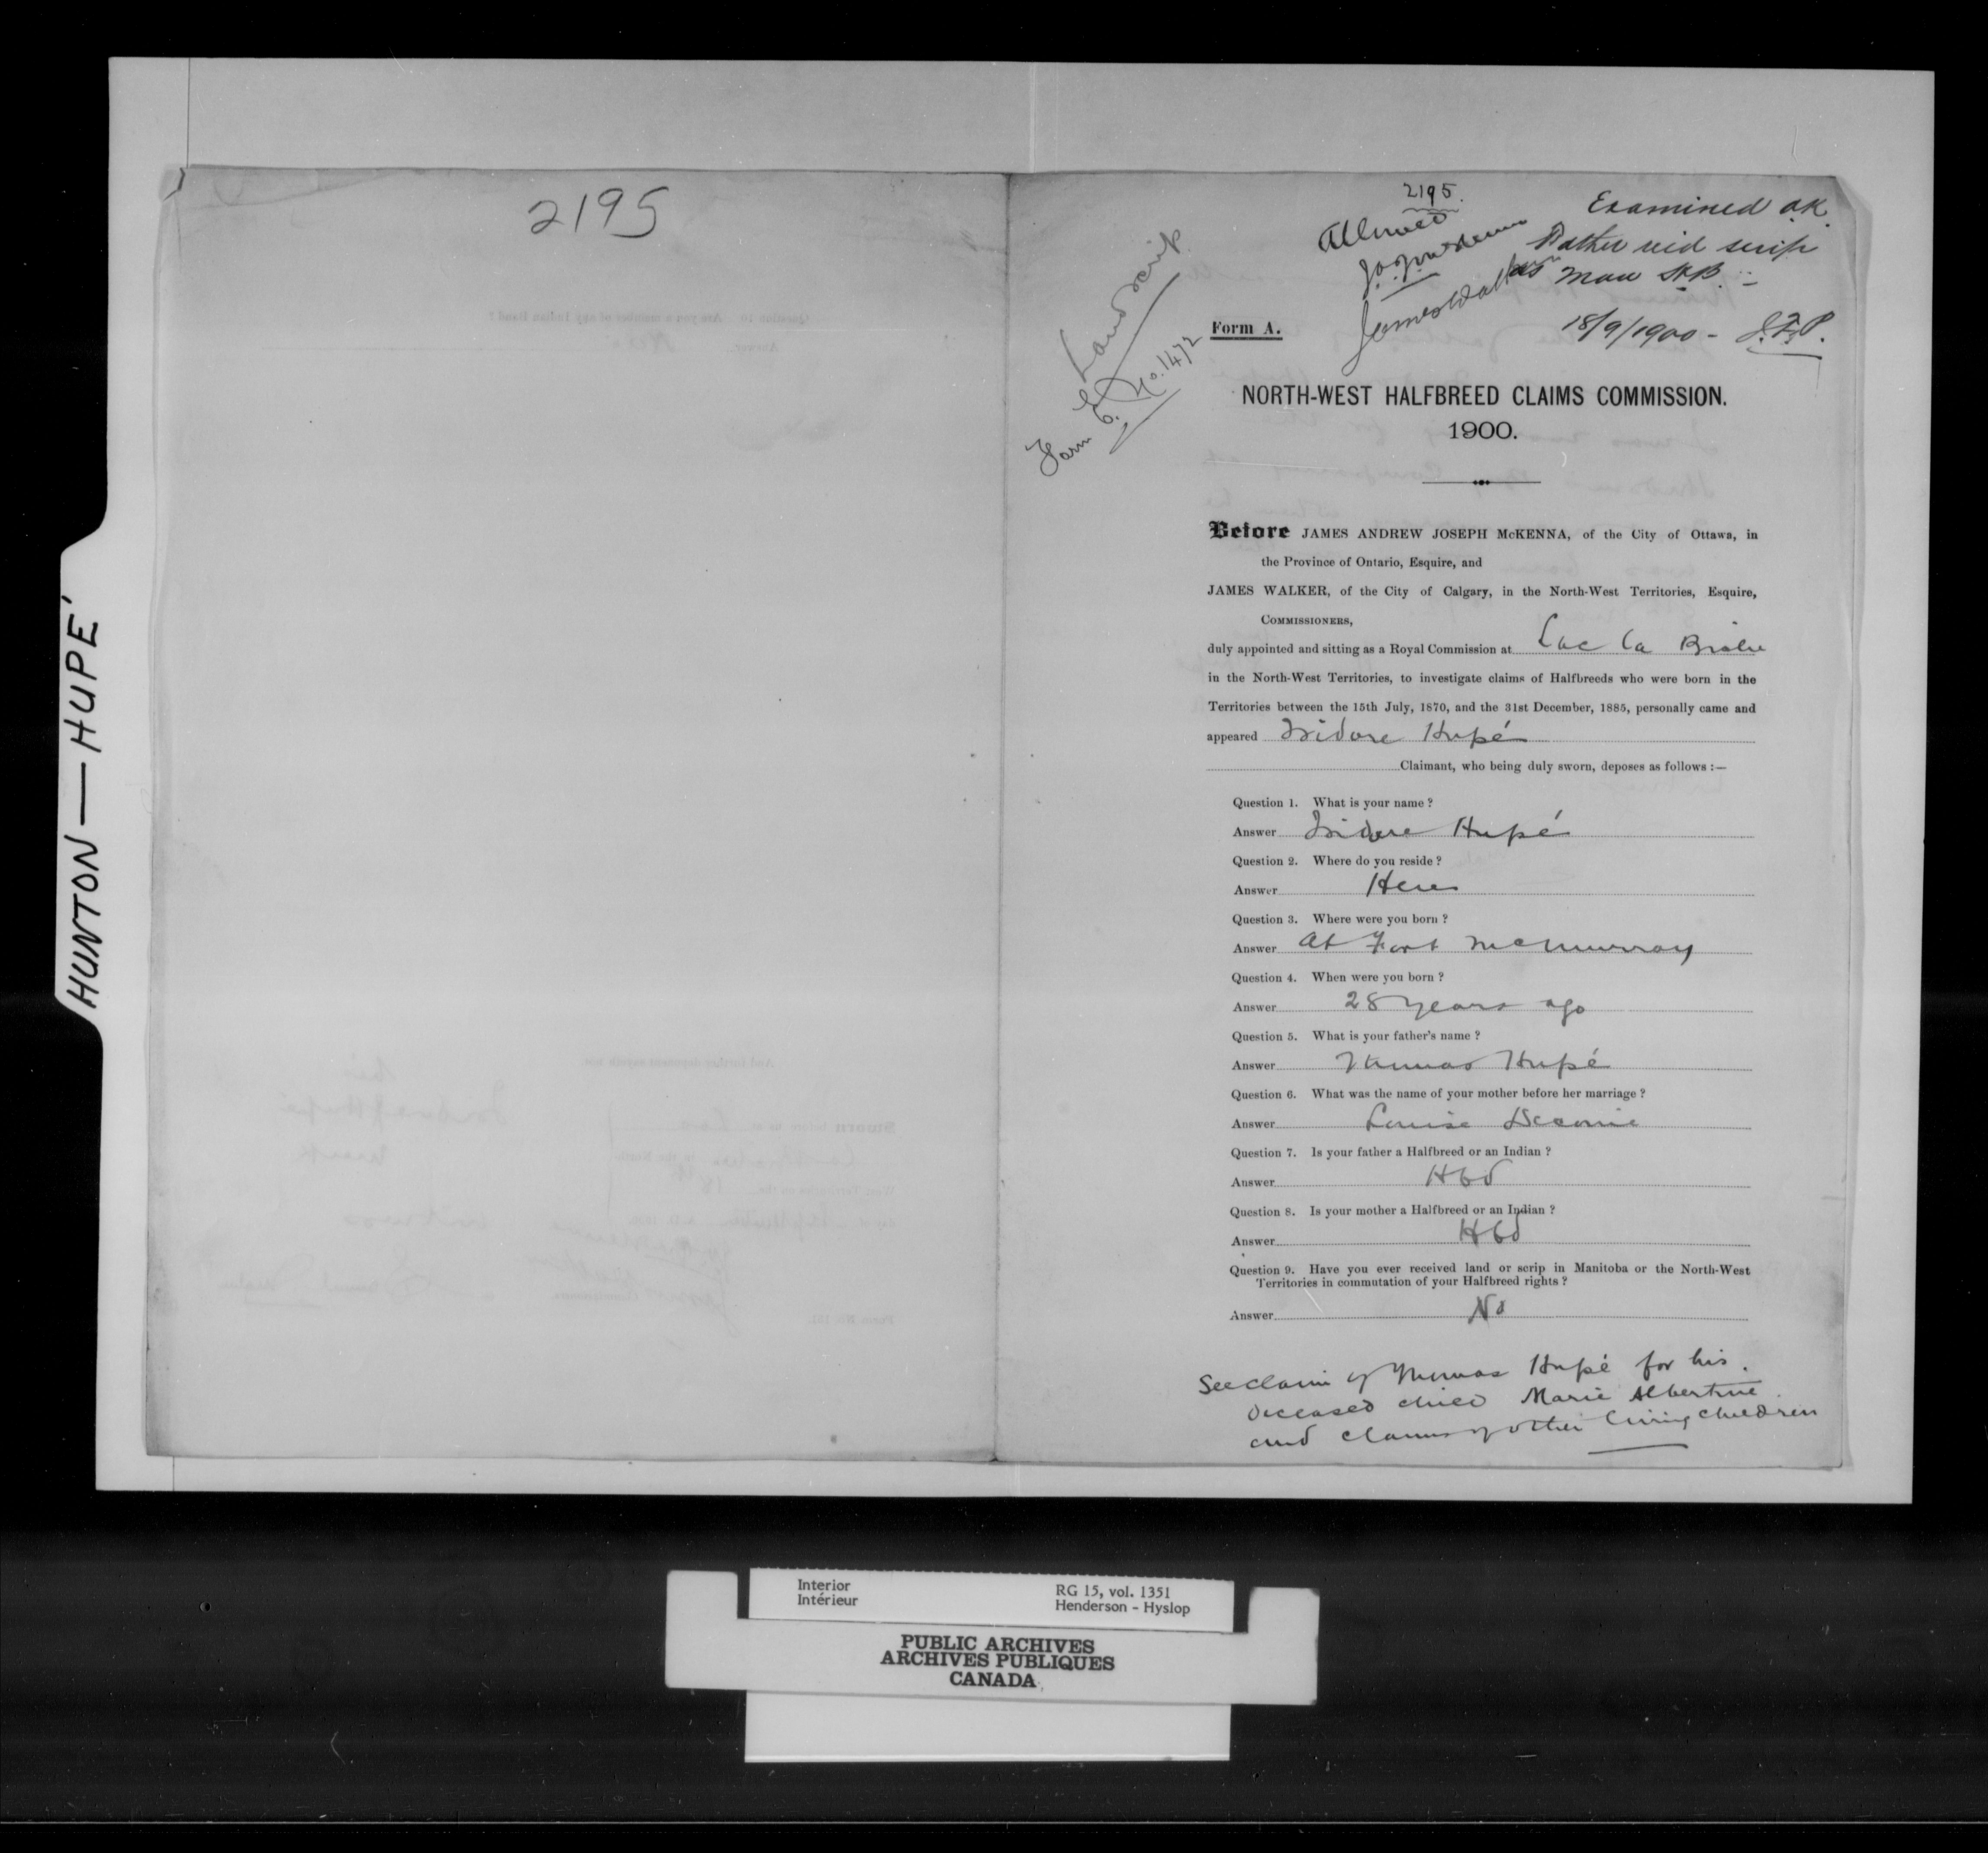 HUNTON — HUPÉ
2195
2195.
Allowed
James Walker
Examined O.K.
Father rec'd scrip
as Man H.B. -
18/9/1900 - J.F.P.
Land Scrip
Form E. No. 1472
Form A.
NORTH-WEST HALFBREED CLAIMS COMMISSION.
1900.
Before JAMES ANDREW JOSEPH McKENNA, of the City of Ottawa, in
the Province of Ontario, Esquire, and
JAMES WALKER, of the City of Calgary, in the North-West Territories, Esquire,
COMMISSIONERS,
duly appointed and sitting as a Royal Commission at Lac la Biche
in the North-West Territories, to investigate claims of Halfbreeds who were born in the
Territories between the 15th July, 1870, and the 31st December, 1885, personally came and
appeared Isidore Hupé
Claimant, who being duly sworn, deposes as follows :—
Question 1. What is your name ?
Answer Isidore Hupé
Question 2. Where do you reside ?
Answer Here
Question 3. Where were you born ?
Answer At Fort McMurray
Question 4. When were you born ?
Answer 28 years ago
Question 5. What is your father's name ?
Answer Thomas Hupé
Question 6. What was the name of your mother before her marriage ?
Answer Louise Decoine
Question 7. Is your father a Halfbreed or an Indian ?
Answer Hbd
Question 8. Is your mother a Halfbreed or an Indian ?
Answer Hbd
Question 9. Have you ever received land or scrip in Manitoba or the North-West
Territories in commutation of your Halfbreed rights ?
Answer No
See claim of Thomas Hupé for his
deceased child Marie Albertine
and claims of other living children
Interior
Intérieur
RG 15, vol. 1351
Henderson - Hyslop
PUBLIC ARCHIVES
ARCHIVES PUBLIQUES
CANADA